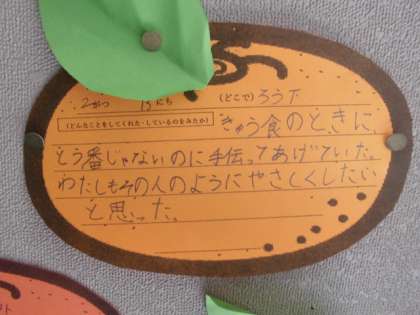 2がつ 15にち (どこで)ろう下
(どんなことをしてくれた・しているのをみたか) きゅう食のときに、
とう番じゃないのに手伝ってあげていた。
わたしもその人のようにやさしくしたい
と思った。